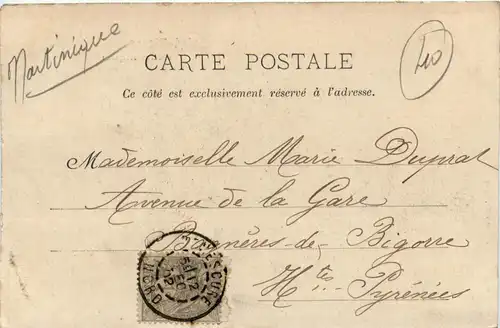 Martinique
40
CARTE POSTALE
Ce côté est exclusivement réservé à l'adresse.
Mademoiselle Marie Duprat
Avenue de la Gare
Bagnères-de-Bigorre
Htes Pyrénées